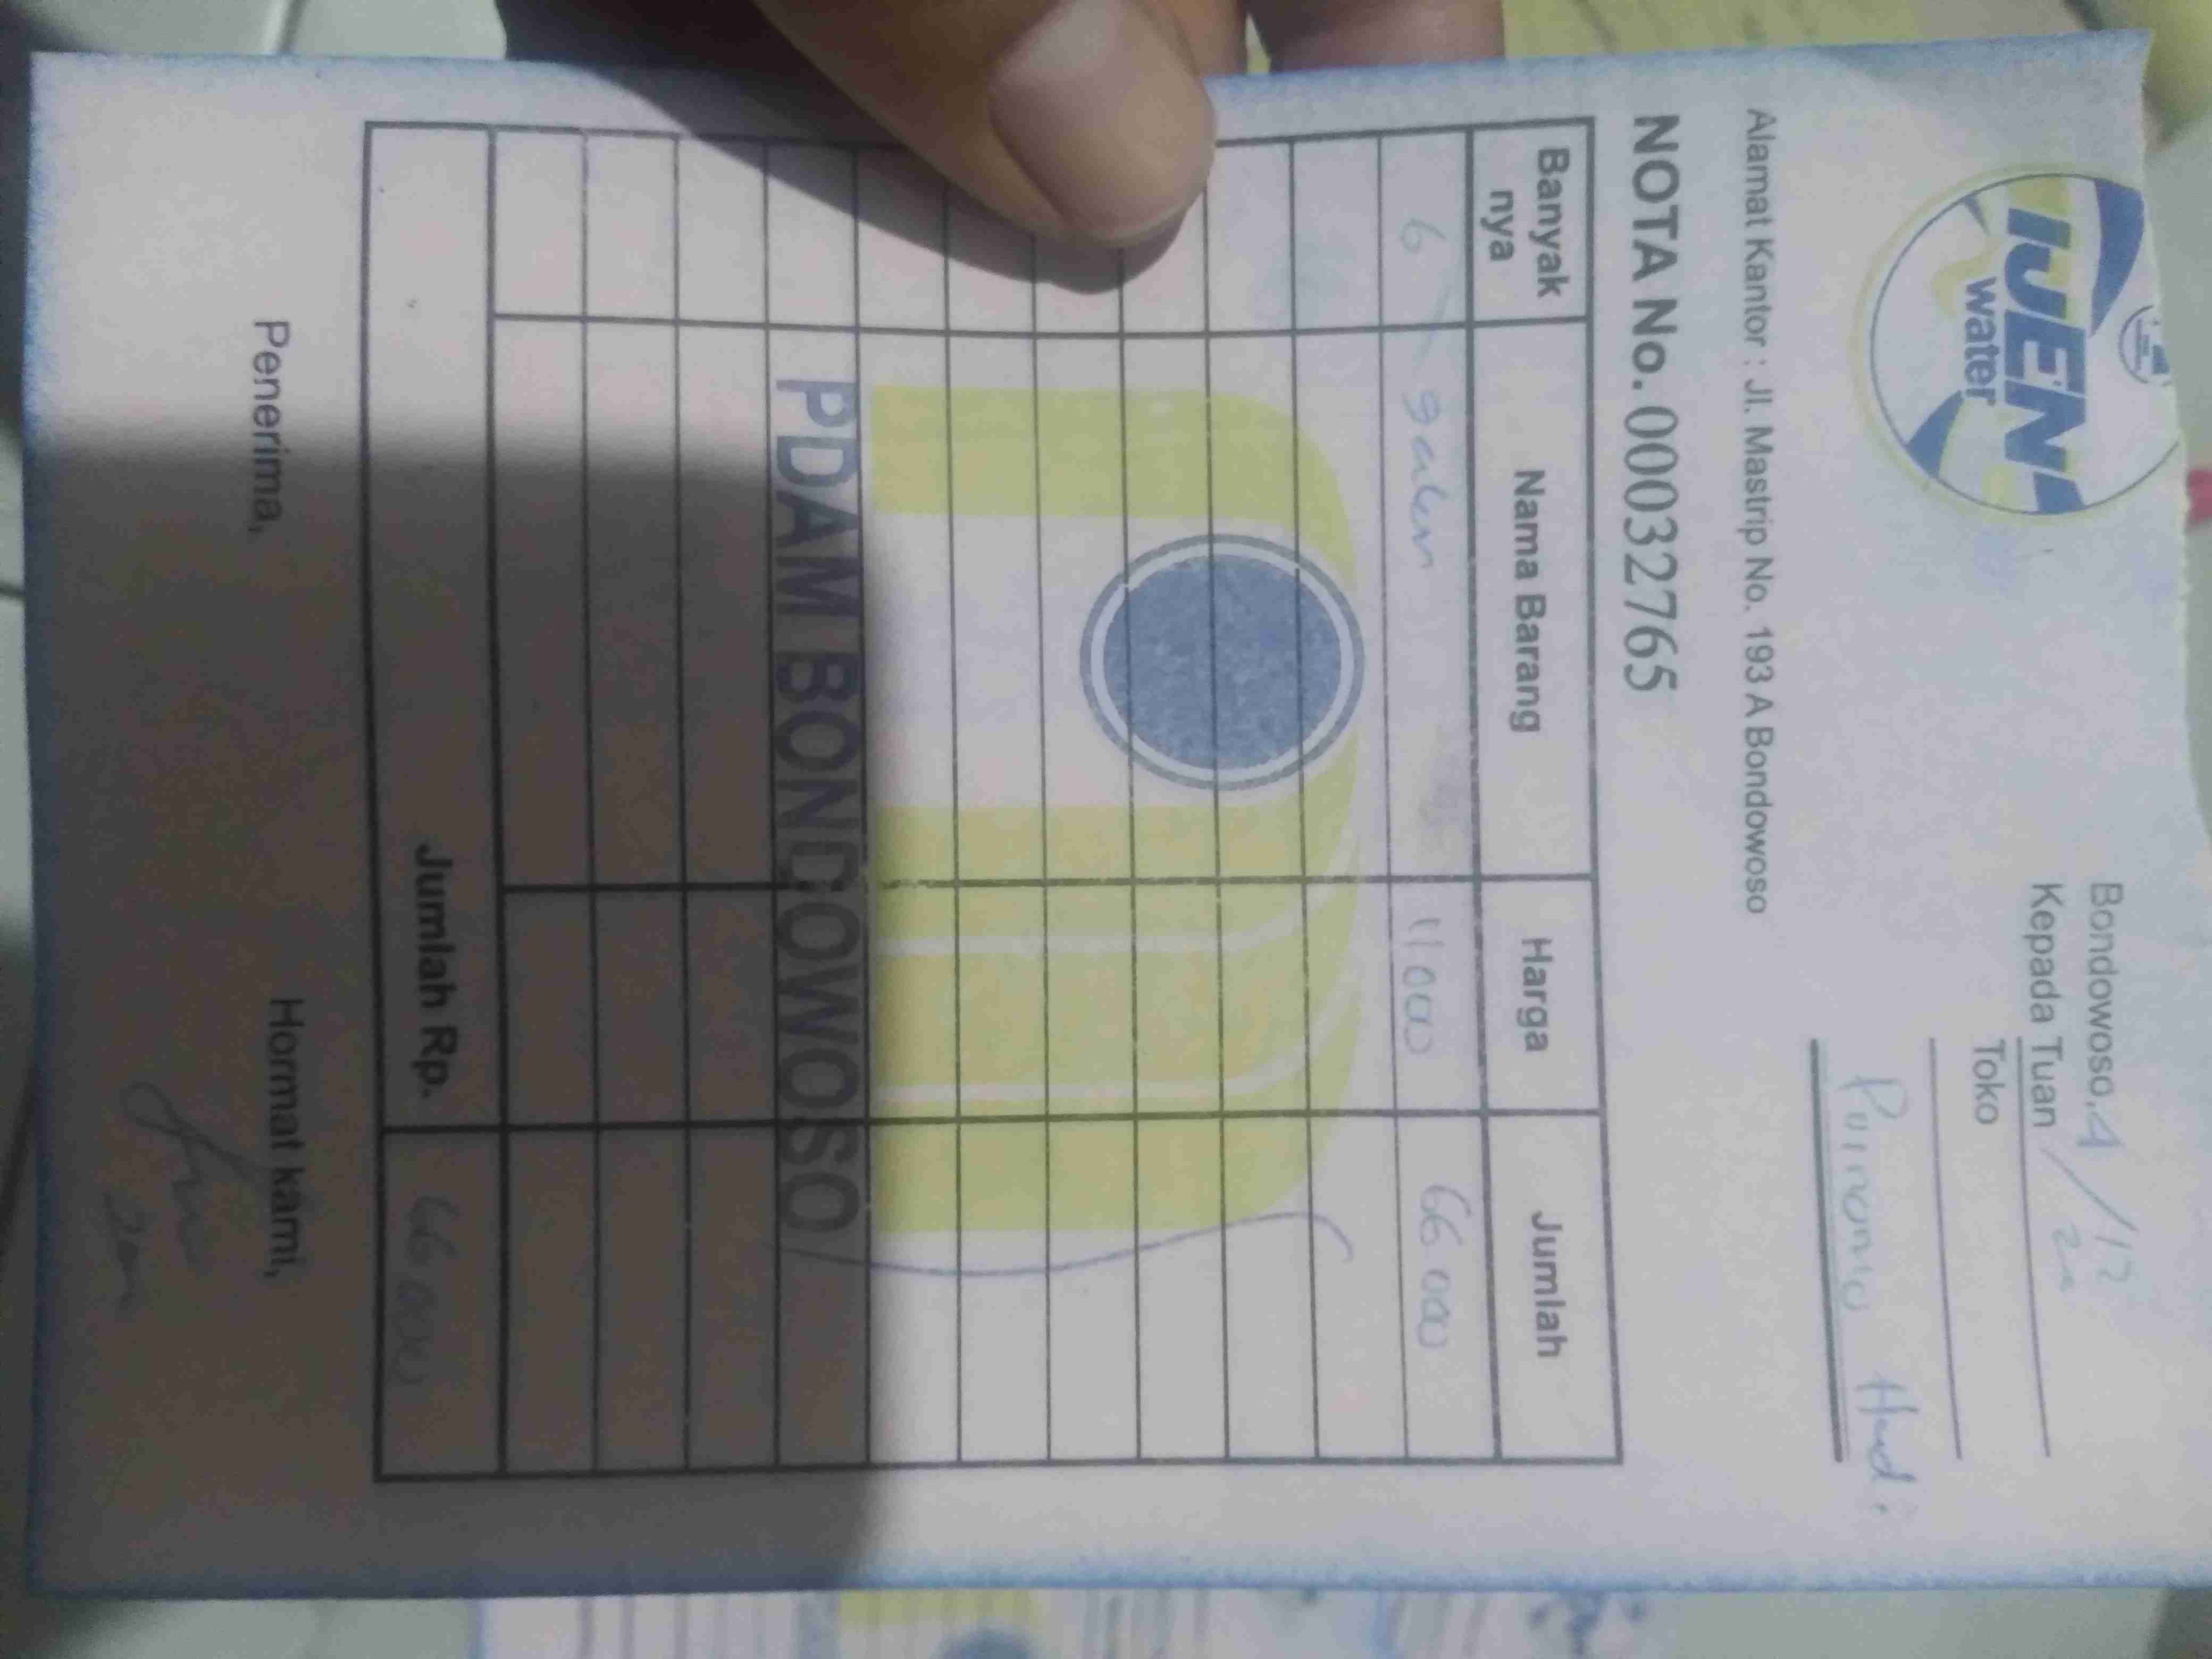 IJEN
water
Bondowoso, 4/12
Kepada Tuan
Toko
Purnomo Hadi
Alamat Kantor : Jl. Mastrip No. 193 A Bondowoso
NOTA No. 00032765
Banyak nya Nama Barang Harga Jumlah
6 galon 11000 66.000
PDAM BONDOWOSO
Jumlah Rp. 66.000
Penerima, Hormat kami,